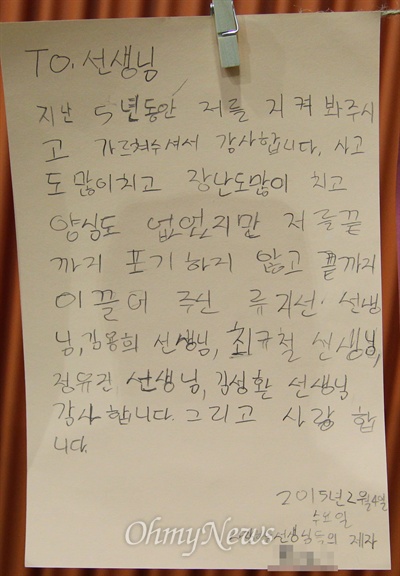 TO. 선생님
지난 5년동안 저를 지켜 봐주시
고 가르쳐주셔서 감사합니다. 사고
도 많이치고 장난도많이 치고
양심도 없었지만 저를끝
까지 포기하지 않고 끝까지
이끌어 주신 류지선 선생
님, 김용희 선생님, 최규철 선생님,
정유진 선생님, 김성환 선생님
감사합니다. 그리고 사랑합
니다.
2015년 2월 4일
수요일
선생님들의 제자
OhmyNews